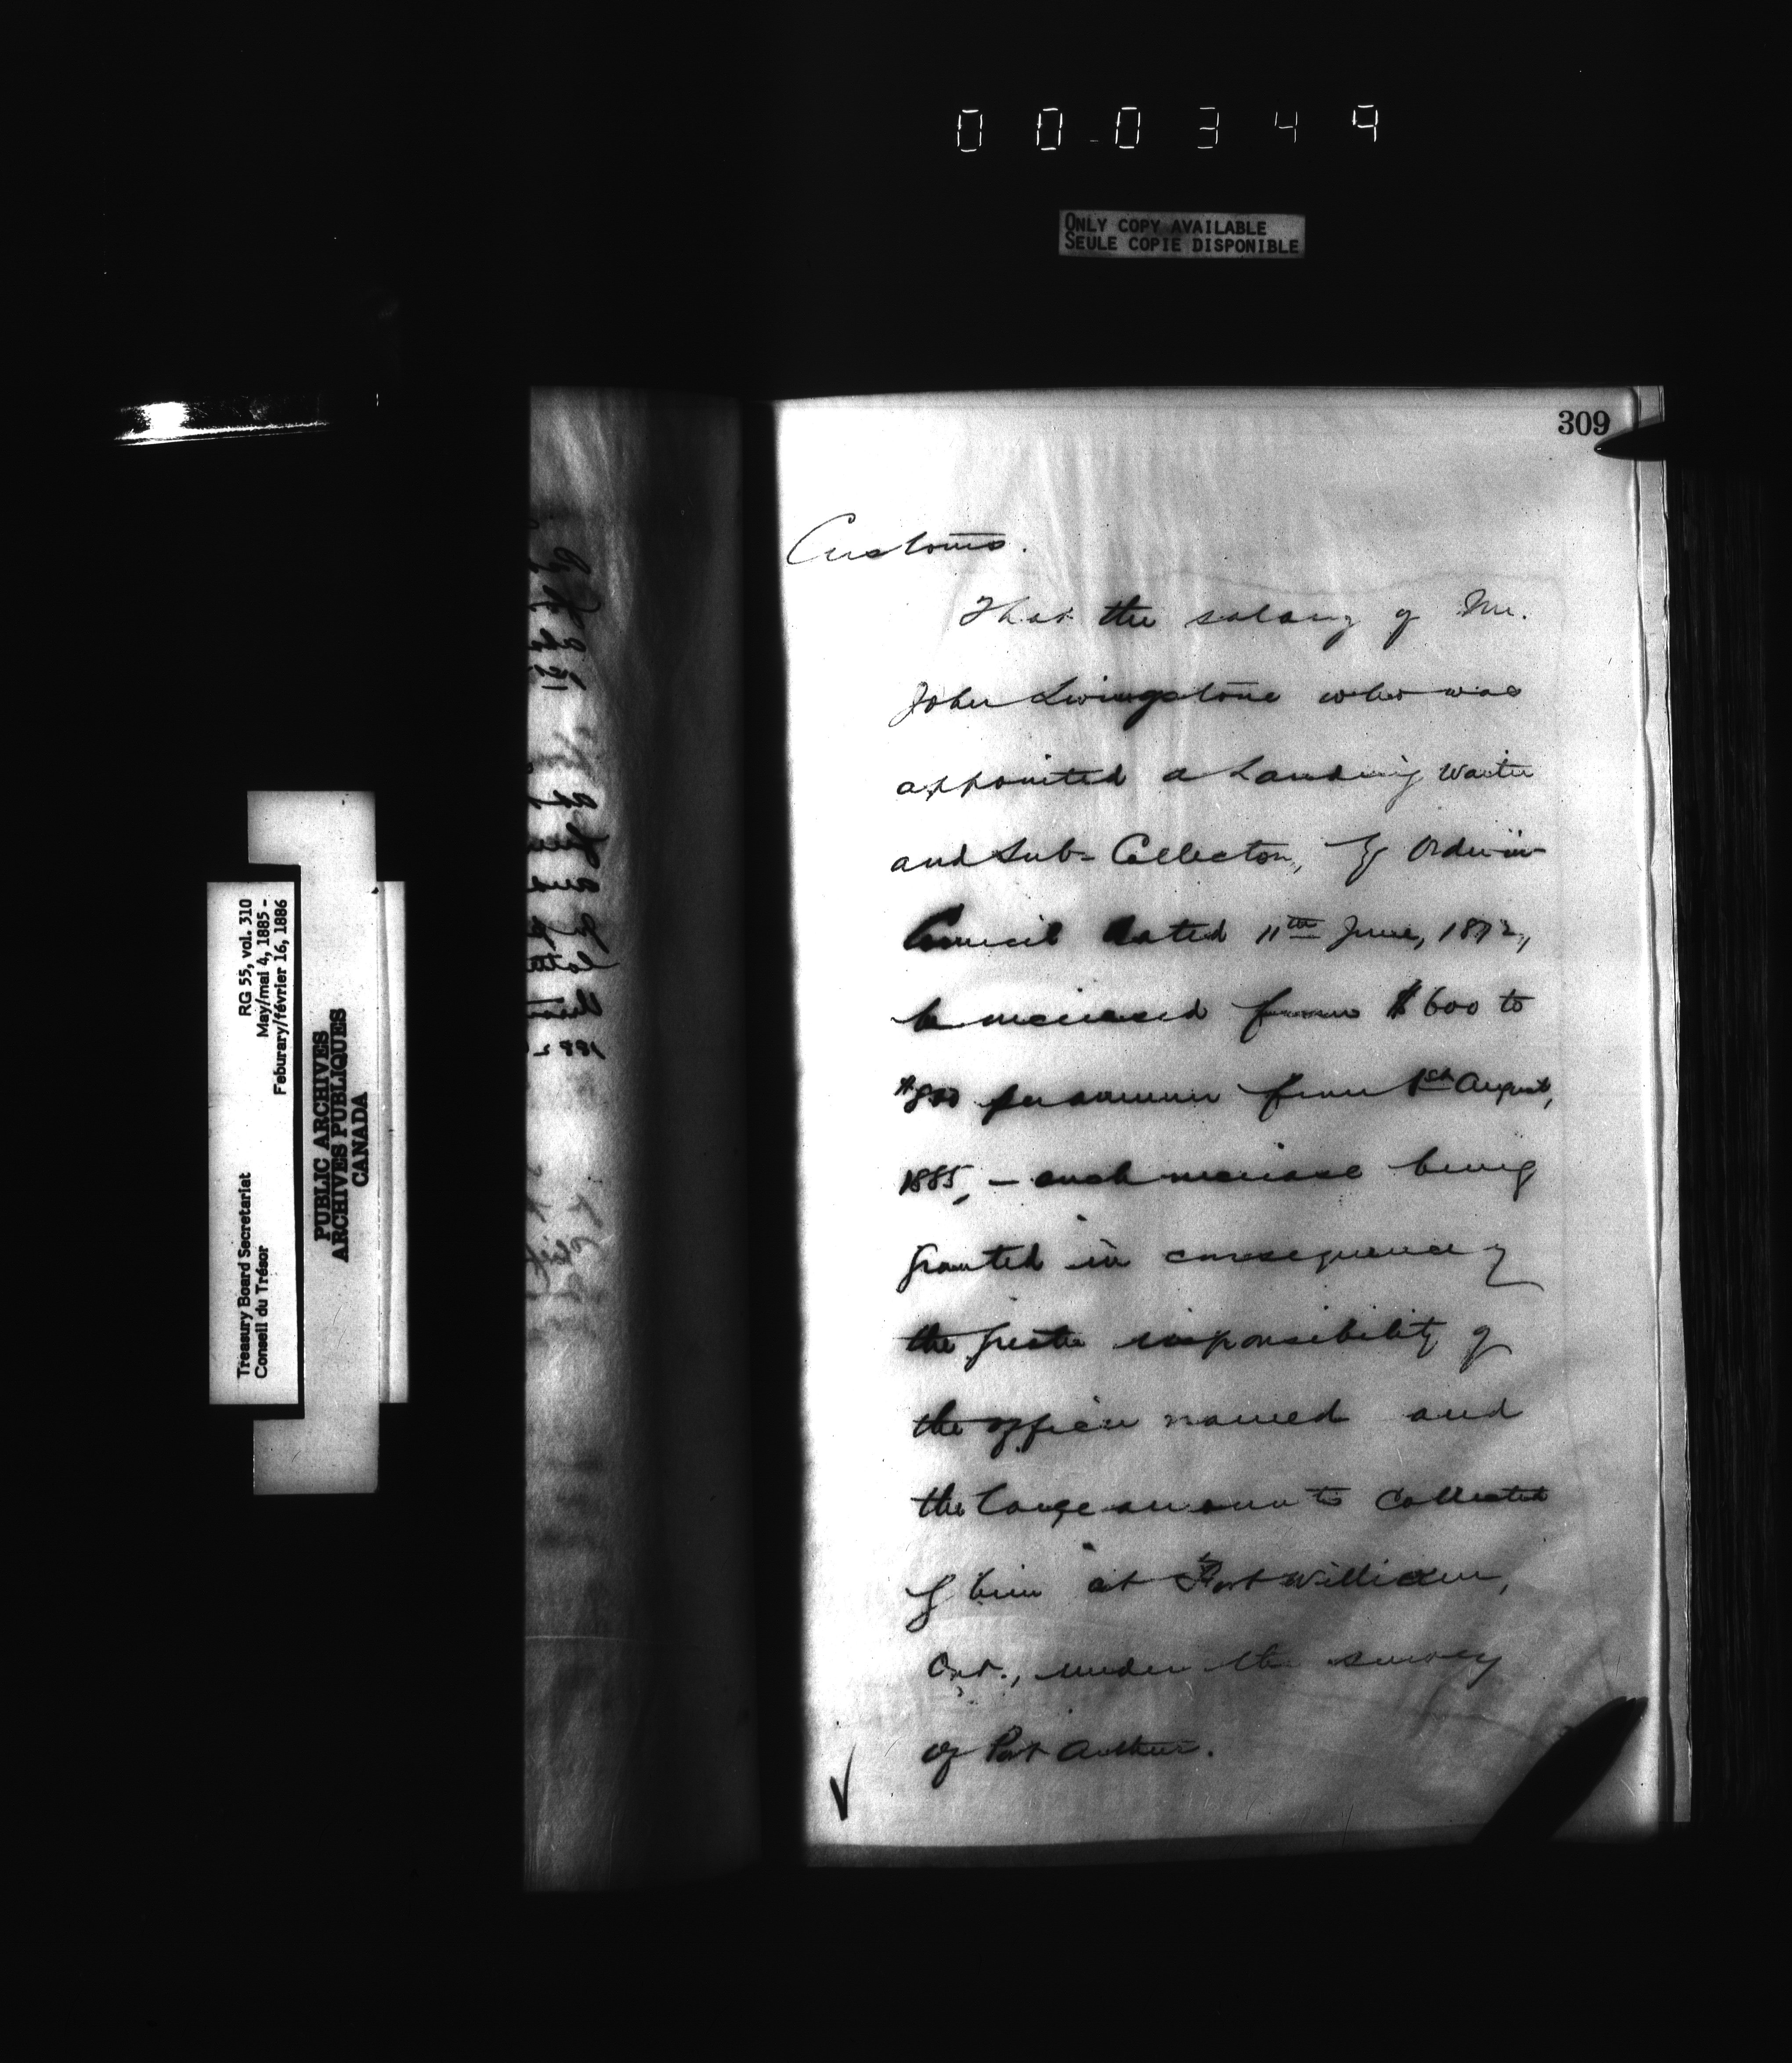 000349
ONLY COPY AVAILABLE
SEULE COPIE DISPONIBLE
309
Customs.
That the salary of Mr.
John Livingstone who was
appointed a Landing Waiter
and Sub-Collector, by Order in
Council dated 11th June, 1872,
be increased from $600 to
$800 per annum from 1st August,
1885, – such increase being
granted in consequence of
the greater responsibility of
the officer named and
the large amounts collected
by him at Fort William,
Ont., under the survey
of Port Arthur.
Treasury Board Secretariat
Conseil du Trésor
RG 55, vol. 310
May/mai 4, 1885 -
Feburary/février 16, 1886
PUBLIC ARCHIVES
ARCHIVES PUBLIQUES
CANADA